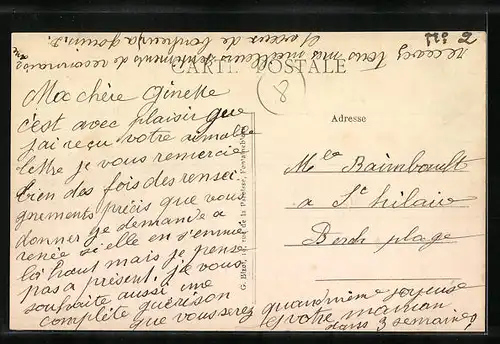 No 2
CARTE POSTALE
8
Adresse
Ma chère Ginette
c'est avec plaisir que
j'ai reçu votre aimable
lettre je vous remercie
bien des fois des rensei
gnements précis que vous
donner je demande a
renée si elle en s'ennuie
là haut mais je pense
pas a présent. je vous
souhaite aussi une
complète guérison
que vous serez quand même joyeuse
votre maman
dans 3 semaines
recevez tous mes meilleurs sentiments de reconnaissance
et accex de bonheur
Mlle Raimboult
a St hilaire
Berck plage